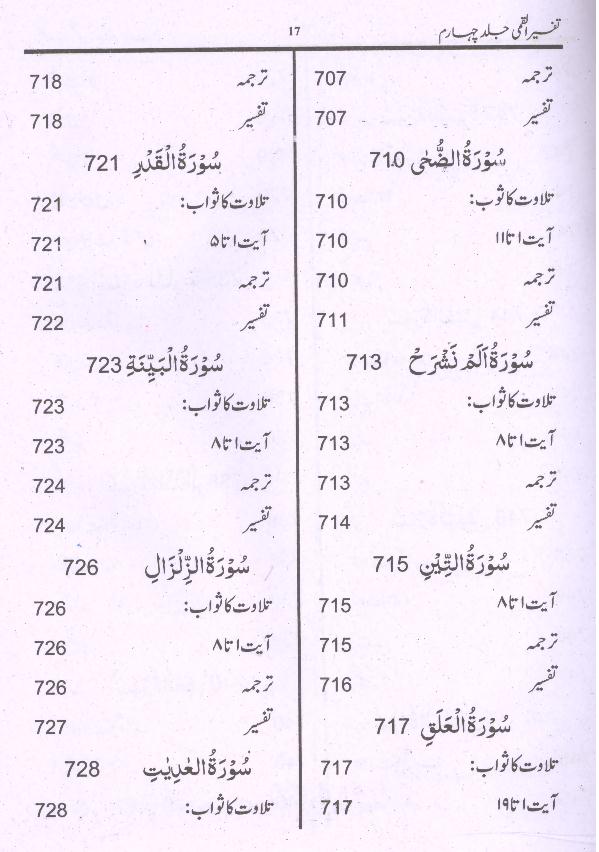 تفسیر القمی جلد چہارم 17
ترجمہ 707
تفسیر 707
سُوْرَةُ الضُّحٰی 710
تلاوت کا ثوب: 710
آیت ۱ تا ۱۱ 710
ترجمہ 710
تفسیر 711
سُوْرَةُ اَلَمْ نَشْرَحْ 713
تلاوت کا ثواب: 713
آیت ۱ تا ۸ 713
ترجمہ 713
تفسیر 714
سُوْرَةُ التِّیْنِ 715
آیت ۱ تا ۸ 715
ترجمہ 715
تفسیر 716
سُوْرَةُ الْعَلَقِ 717
تلاوت کا ثواب: 717
آیت ۱ تا ۱۹ 717
ترجمہ 718
تفسیر 718
سُوْرَةُ الْقَدْرِ 721
تلاوت کا ثواب: 721
آیت ۱ تا ۵ 721
ترجمہ 721
تفسیر 722
سُوْرَةُ الْبَیِّنَةِ 723
تلاوت کا ثواب: 723
آیت ۱ تا ۸ 723
ترجمہ 724
تفسیر 724
سُوْرَةُ الزِّلْزَالِ 726
تلاوت کا ثواب: 726
آیت ۱ تا ۸ 726
ترجمہ 726
تفسیر 727
سُوْرَةُ الْعٰدِیٰتِ 728
تلاوت کا ثواب: 728